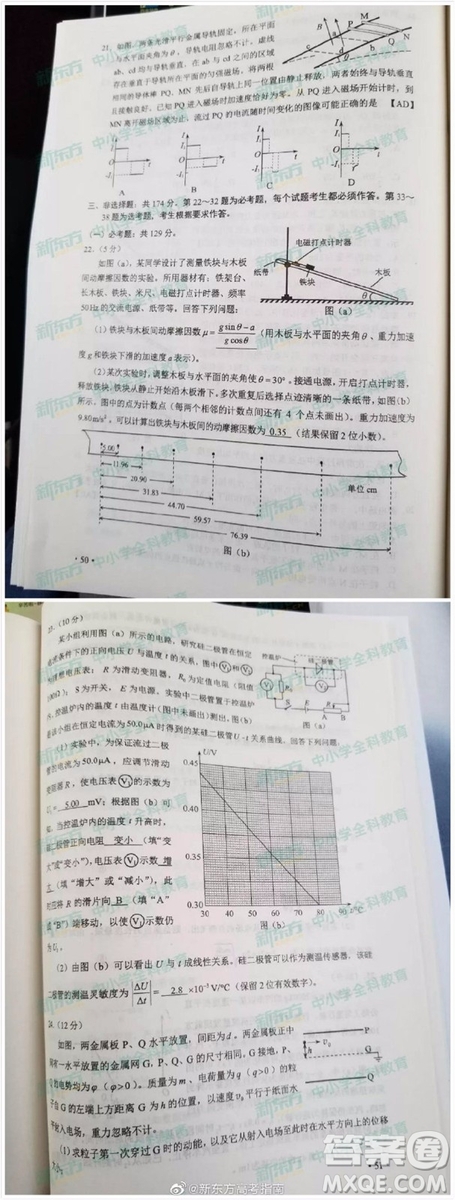 21. 如图，两条光滑平行金属导轨固定，所在平面
与水平面夹角为θ，导轨电阻忽略不计。虚线
ab、cd均与导轨垂直，在ab与cd之间的区域
存在垂直于导轨所在平面的匀强磁场，将两根
相同的导体棒PQ、MN先后自导轨上同一位置由静止释放，两者始终与导轨垂直
且接触良好。已知PQ进入磁场时加速度恰好为零。从PQ进入磁场开始计时，到
MN离开磁场区域为止，流过PQ的电流随时间变化的图像可能正确的是 【AD】
A B C D
三、非选择题：共174分。第22～32题为必考题，每个试题考生都必须作答。第33～
38题为选考题，考生根据要求作答。
（一）必考题：共129分。
22.（5分）
如图（a），某同学设计了测量铁块与木板
间动摩擦因数的实验。所用器材有：铁架台、
长木板、铁块、米尺、电磁打点计时器、频率
50Hz的交流电源、纸带等。回答下列问题：
电磁打点计时器
纸带
铁块
木板
θ
图（a）
（1）铁块与木板间动摩擦因数μ= (g sinθ−a)/(g cosθ) （用木板与水平面的夹角θ、重力加速
度g和铁块下滑的加速度a表示）。
（2）某次实验时，调整木板与水平面的夹角使θ=30°。接通电源，开启打点计时器，
释放铁块，铁块从静止开始沿木板滑下。多次重复后选择点迹清晰的一条纸带，如图（b）
所示。图中的点为计数点（每两个相邻的计数点间还有4个点未画出）。重力加速度为
9.80m/s²，可以计算出铁块与木板间的动摩擦因数为 0.35 （结果保留2位小数）。
5.00
11.96
20.90
31.83
44.70
59.57
76.39
单位 cm
图（b）
·50·
23.（10分）
某小组利用图（a）所示的电路，研究硅二极管在恒定
电流条件下的正向电压U与温度t的关系，图中V₁和V₂
为理想电压表；R为滑动变阻器，R₀为定值电阻（阻值
100Ω）；S为开关，E为电源。实验中二极管置于控温炉
内，控温炉内的温度t由温度计（图中未画出）测出。图（b）
是该小组在恒定电流为50.0μA时得到的某硅二极管U-t关系曲线。回答下列问题：
控温炉
硅二极管
图（a）
（1）实验中，为保证流过二极
管的电流为50.0μA，应调节滑动
变阻器R，使电压表V₁的示数为
U₁= 5.00 mV；根据图（b）可
知，当控温炉内的温度t升高时，
硅二极管正向电阻 变小 （填“变
大”或“变小”），电压表V₁示数 增
大（填“增大”或“减小”），此
时应将R的滑片向 B （填“A”
或“B”）端移动，以使V₁示数仍
为U₁。
U/V
0.45
0.40
0.35
0.30
30 40 50 60 70 80 90 t/℃
图（b）
（2）由图（b）可以看出U与t成线性关系。硅二极管可以作为测温传感器，该硅
二极管的测温灵敏度为|ΔU/Δt|= 2.8 ×10⁻³ V/℃（保留2位有效数字）。
24.（12分）
如图，两金属板P、Q水平放置，间距为d。两金属板正中
间有一水平放置的金属网G，P、Q、G的尺寸相同。G接地，P、
Q的电势均为φ（φ>0）。质量为m、电荷量为q（q>0）的粒
子自G的左端上方距离G为h的位置，以速度v₀平行于纸面水
平射入电场，重力忽略不计。
P
h v₀
G
Q
（1）求粒子第一次穿过G时的动能，以及它从射入电场至此时在水平方向上的位移
大小；
·51·
@新东方高考指南
答案圈
MXQE.COM